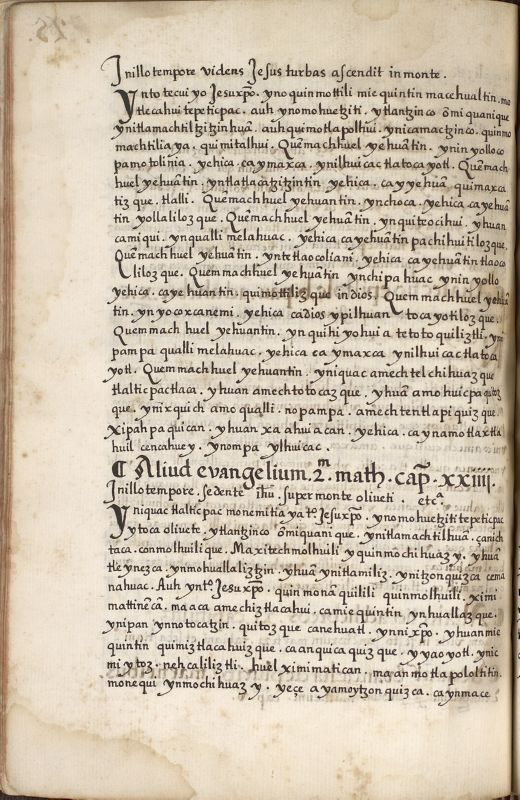 Jn illo tempore videns Jesus turbas ascendit in monte.
Ynto tecui yo Jesuxp̄o. yno quin mottili mie quintin macehualtin. mo
tlecahui tepeticpac. auh ynomohuetziti. ytlantzinco ōmi quanique
ynitlamachtiltzitzinhuā. auh quimotlapoltiui. ynicamactzinco. quinmo
machtilia ya. quimitalhui. Quēmach huel yehuātin. ynin yolloco
pamotolinia. yehica. ca ymaxca. ynilhuicac tlatocayotl. Quēmach
huel yehuātin. yntlatlacatzitzintin yehica. ca yyehuā. quimaxca
tiz que. tlalli. Quemach huel yehuantin. ynchoca. yehica. ca yehuā
tin yollaliloz que. Quēmach huel yehuātin. ynquiteocihui. yhuan
camiqui. ynqualli melahuac. yehica ca yehuātin pachihuitiloz que.
Quēmach huel yehuātin. yntetlaocoliani. yehica ca yehuātin tlaoco
liloz que. Quemmach huel yehuātin ynchipahuac. ynin yollo
yehica. ca yehuantin. quimottiliz que in dios. Quem mach huel yehuā
tin. ynyocoxcanemi. yehica cadios ypilhuan tocayotiloz que.
Quem mach huel yehuantin. ynquihiyohuia tetotoquiliztli. yni
pampa qualli melahuac. yehica ca ymaxca ynilhuicac tlatoca
yotl. Quem mach huel yehuantin. yniquac amechtelchihuaz que
tlalticpac tlaca. yhuan amechtotocaz que. yhuā amohuicpa quitoz
que. ynixquich amo qualli. nopampa. amechtentlapiquiz que
Xipahpaquican. yhuan xa ahuiacan. yehica. ca ynamotlaxtla
huil cencahuey. ynompa ylhuicac.
¶ Aliud evangelium. 2.m math. cap̄. xxiiii.
Jn illo tempore. sedente ihū. super monte oliueti. etcᵃ.
Yniquac tlalticpac monemitia yatº. Jesuxp̄o. ynomohuetziti tepeticpac
ytoca oliuete. ytlantzinco ōmiquani que. ynitlamachtilhuā. canich
taca. conmolhuilique. Maxitechmolhuili yquin mochihuaz y. yhuā
tleynezca. ynmohuallaliztzin. yhuā ynitlamiliz. ynitzonquizca cema
nahuac. Auh yntº Jesuxp̄o. quin monāquilili quinmolhuili. ximi
mattinecā. ma aca amechiztlacahui. ca miequintin ynhuallaz que.
ynipan ynnotocatzin. quitoz que canehuatl. ynnixp̄o. yhuan mie
quintin quimiztlacahuiz que. ca anquicaquiz que. yyaoyotl. ynic
mi ytoz. nehcaliliztli. huel ximimatican. ma yanmotlapololtitin.
monequi ynmochihuaz y. yeçe ayamo ytzonquizca. ca ynmace